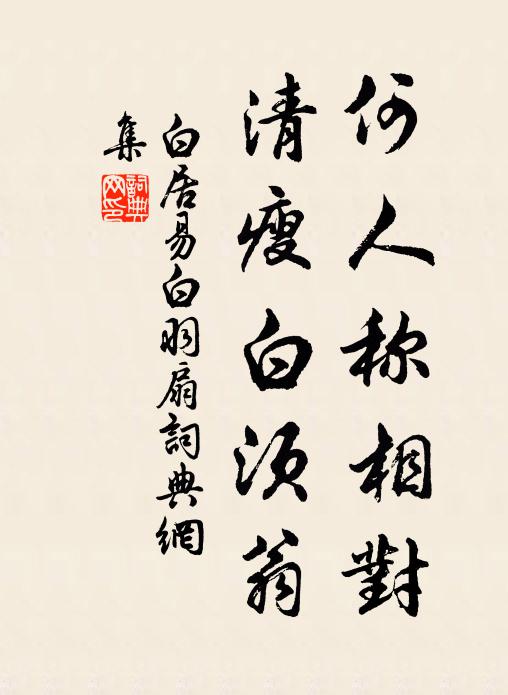 何人称相對
清瘦白须翁
白居易白羽扇詞典網
集
詞典
网印